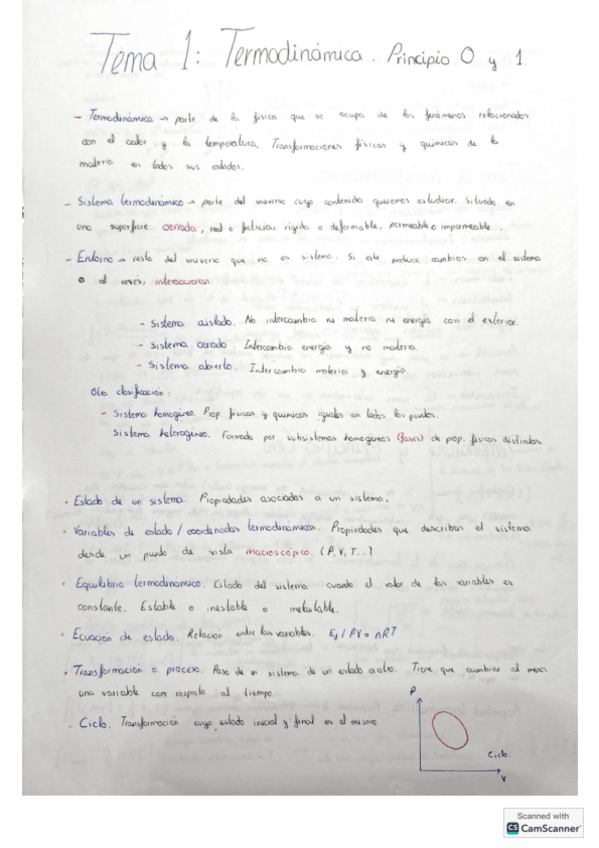 Tema 1: Termodinámica. Principio 0 y 1.
- Termodinámica → parte de la física que se ocupa de los fenómenos relacionados
con el calor y la temperatura. Transformaciones físicas y químicas de la
materia en todos sus estados.
- Sistema termodinámico → parte del universo cuyo contenido queremos estudiar. Situado en
una superficie cerrada, real o ficticia, rígida o deformable, permeable o impermeable...
- Entorno → resto del universo que no es sistema. Si este produce cambios en el sistema
o al revés, interaccionan
- Sistema aislado. No intercambia ni materia ni energía con el exterior.
- Sistema cerado. Intercambia energía y no materia.
- Sistema abierto. Intercambia materia y energía
Otra clasificación:
- Sistema homogéneo. Prop. físicas y químicas iguales en todos los puntos.
Sistema heterogéneo. Formado por subsistemas homogéneos (fases) de prop. físicas distintas
• Estado de un sistema. Propiedades asociadas a un sistema.
• Variables de estado / coordenadas termodinámicas. Propiedades que describen el sistema
desde un punto de vista macroscópico. (P, V, T...)
• Equilibrio termodinámico. Estado del sistema cuando el valor de las variables es
constante. Estable o inestable o metaestable.
• Ecuación de estado. Relación entre las variables. Ej/ PV = nRT
• Transformación o proceso. Paso de un sistema de un estado a otro. Tiene que cambiar al menos
una variable con respecto al tiempo.
- Ciclo. Transformación cuyo estado inicial y final es el mismo
P
Ciclo.
V
Scanned with
CS CamScanner